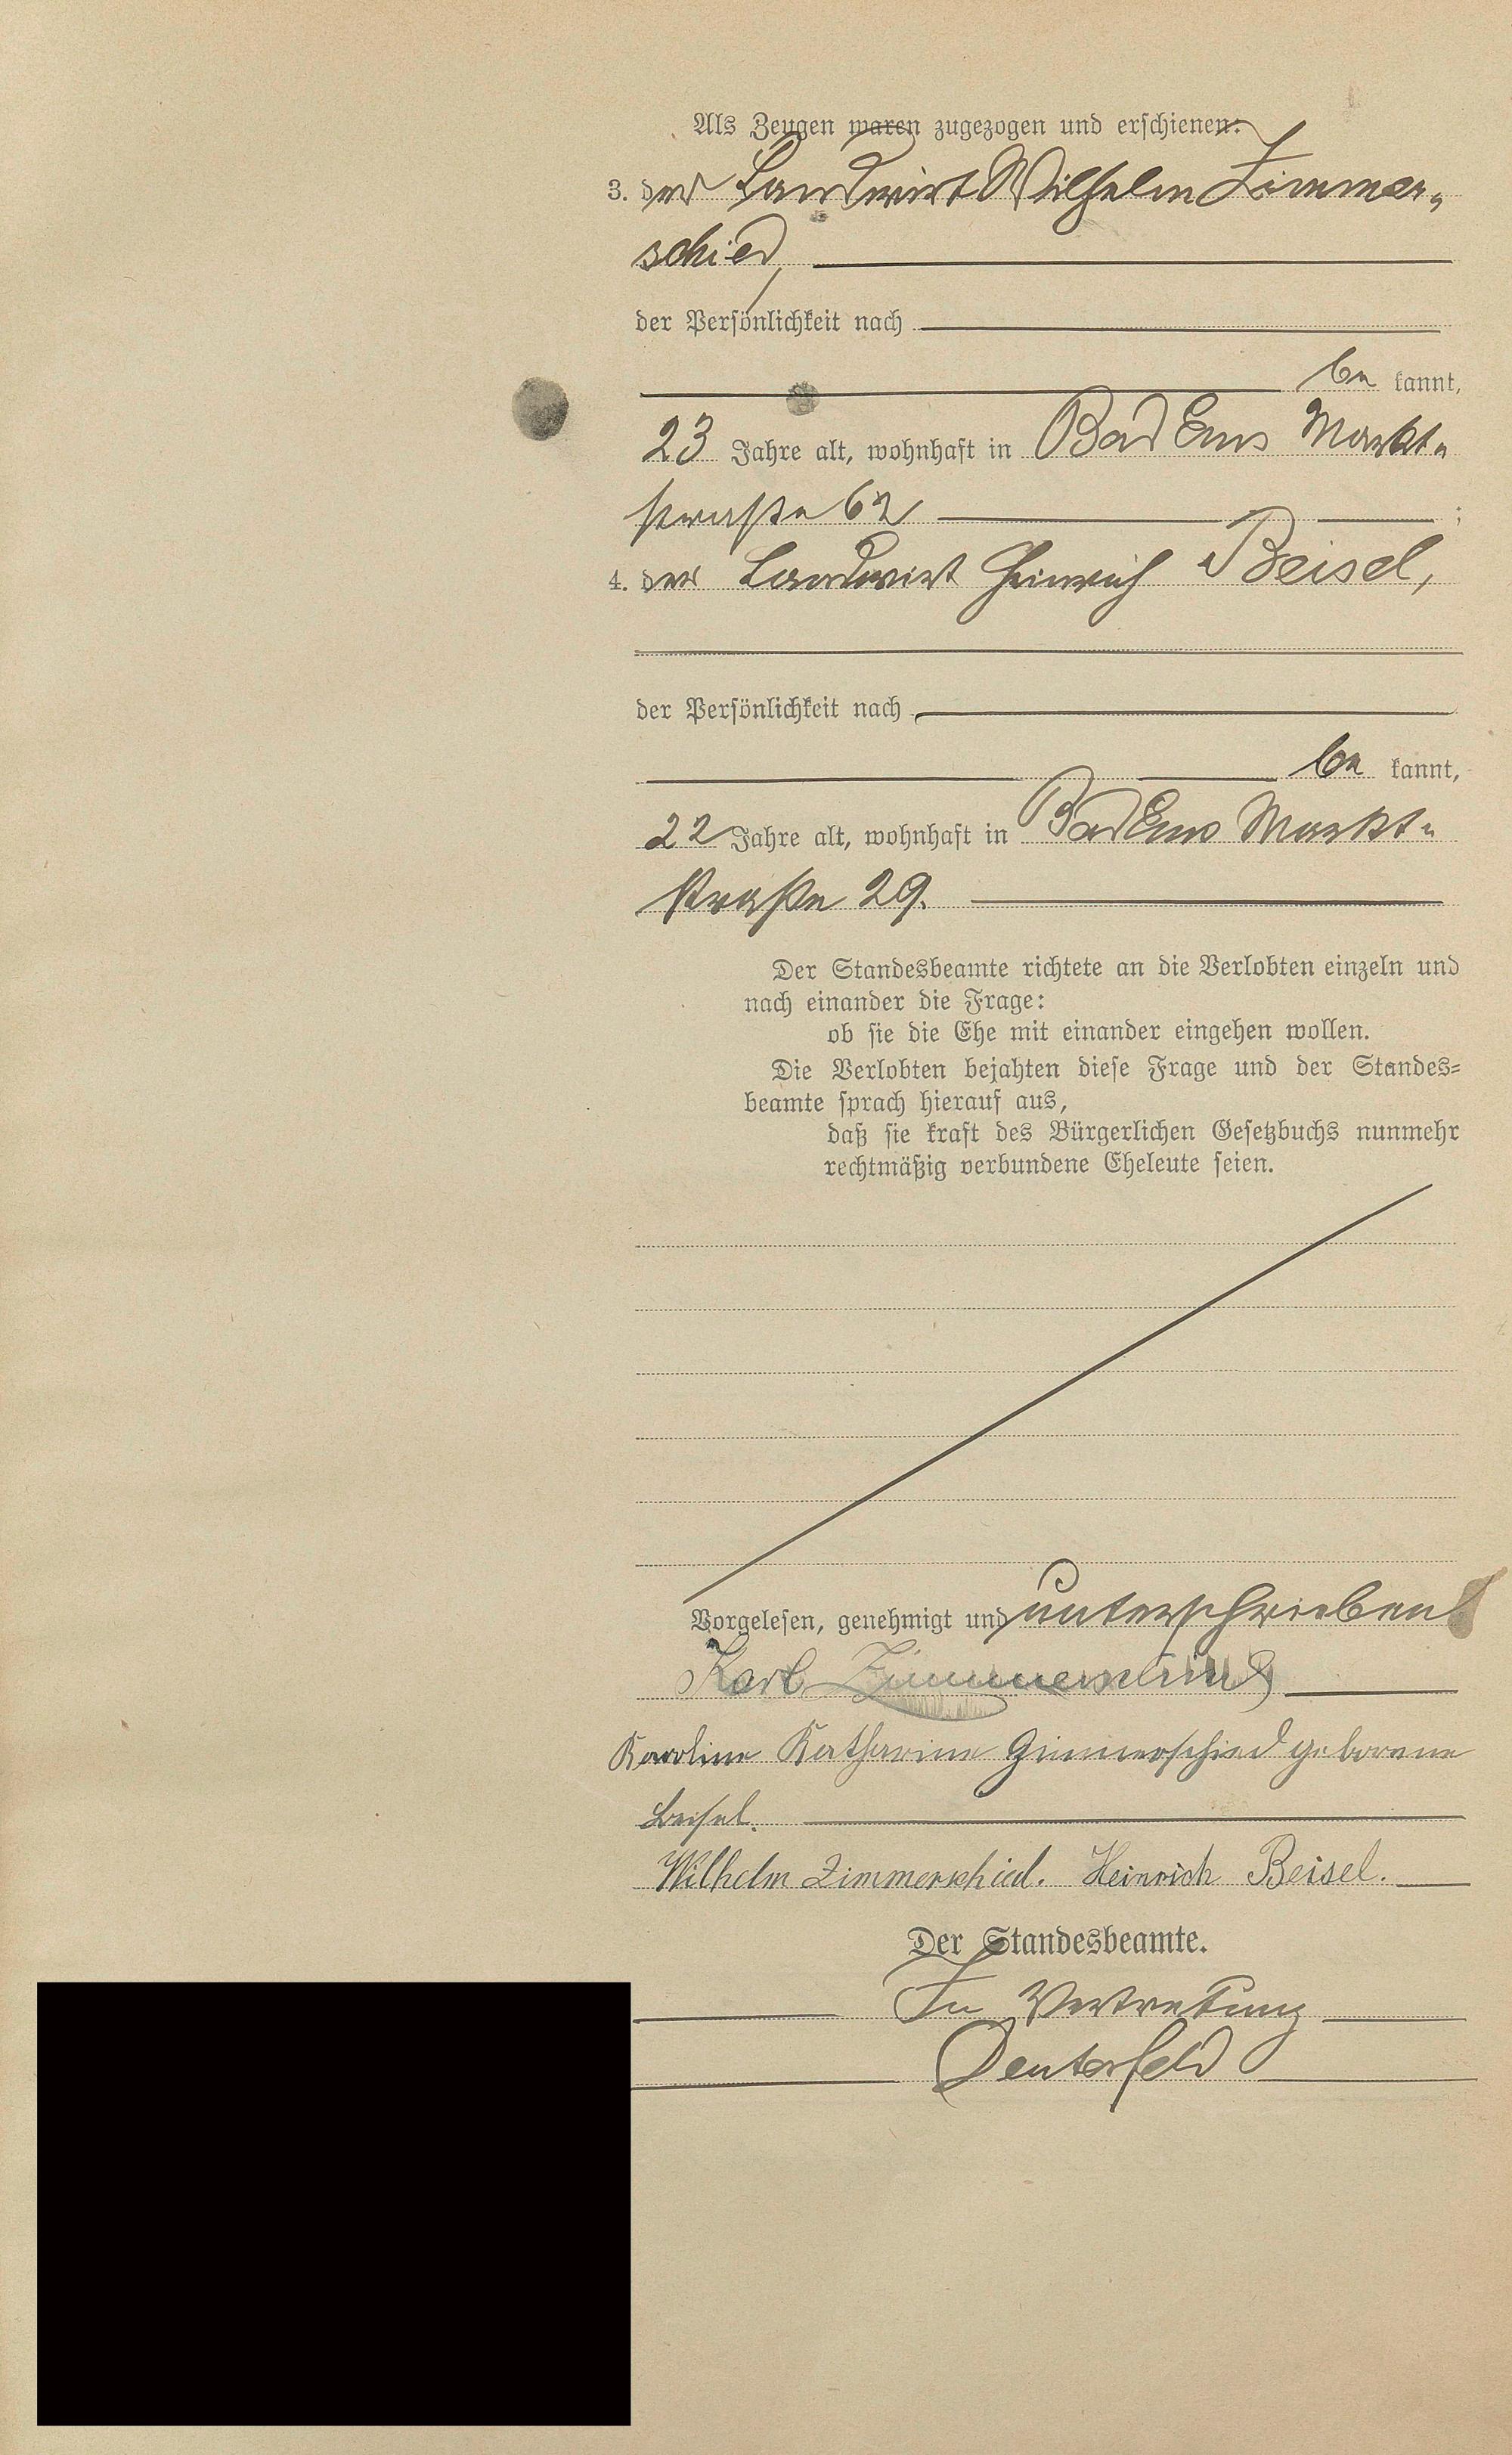 Als Zeugen waren zugezogen und erschienen:
3. der Landwirt Wilhelm Zimmer-
schied,
der Persönlichkeit nach
be kannt,
23 Jahre alt, wohnhaft in Bad Ems Markt-
straße 62 ;
4. der Landwirt Heinrich Beisel,
der Persönlichkeit nach
be kannt,
22 Jahre alt, wohnhaft in Bad Ems Markt-
straße 29.
Der Standesbeamte richtete an die Verlobten einzeln und
nach einander die Frage:
ob sie die Ehe mit einander eingehen wollen.
Die Verlobten bejahten diese Frage und der Standes-
beamte sprach hierauf aus,
daß sie kraft des Bürgerlichen Gesetzbuchs nunmehr
rechtmäßig verbundene Eheleute seien.
Vorgelesen, genehmigt und unterschrieben
Karl Zimmerschied
Karoline Katharine Zimmerschied geborene
Beisel.
Wilhelm Zimmerschied. Heinrich Beisel.
Der Standesbeamte.
In Vertretung
Deuterfeld